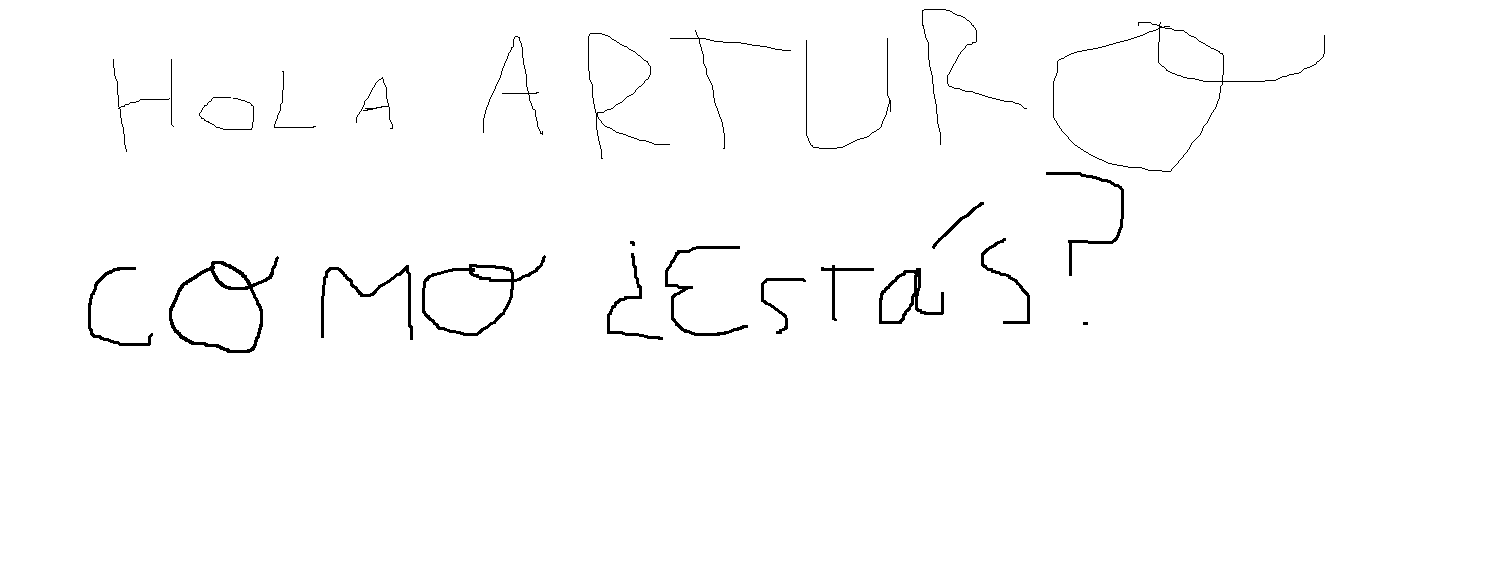 HOLA ARTURO
COMO ¿EstáS?